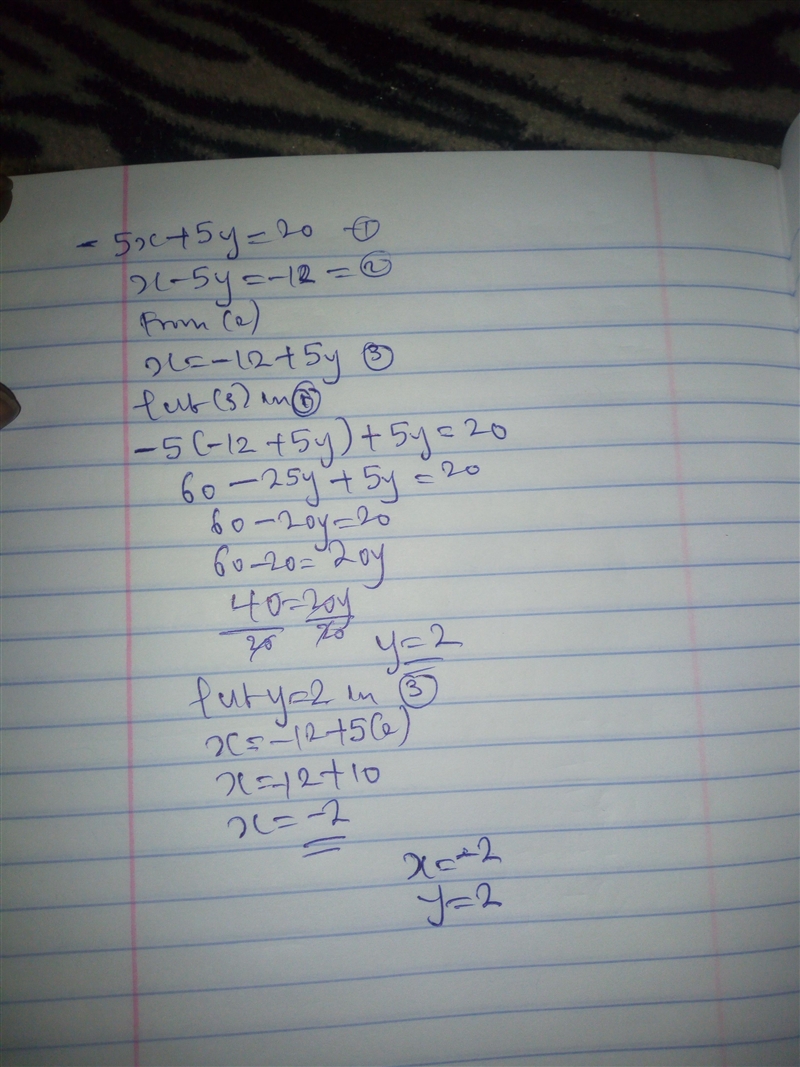 - 5x+5y=20 -①
x-5y=-12 = ②
From (2)
x=-12+5y ③
Put (3) in ①
-5(-12+5y)+5y=20
60-25y+5y=20
60-20y=20
60-20=20y
40=20y
20 20
y=2
Put y=2 in ③
x=-12+5(2)
x=-12+10
x=-2
x=-2
y=2